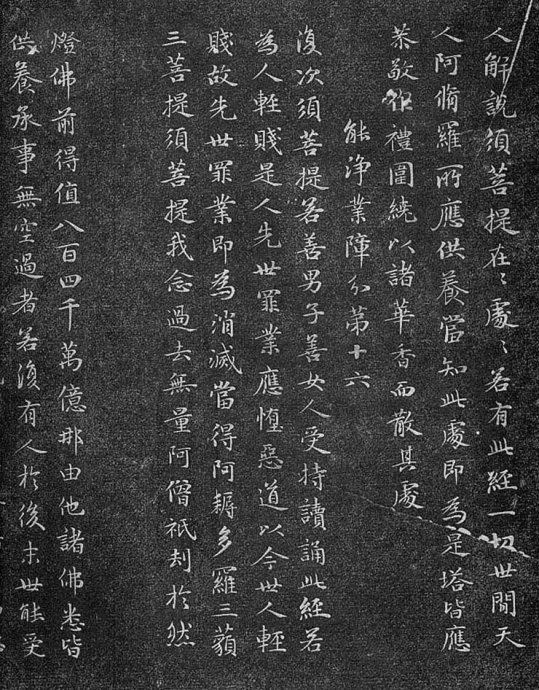 人解說須菩提在〻處〻若有此經一切世間天
人阿脩羅所應供養當知此處即為是塔皆應
恭敬作禮圍繞以諸華香而散其處
能淨業障分第十六
復次須菩提若善男子善女人受持讀誦此經若
為人輕賤是人先世罪業應墮惡道以今世人輕
賤故先世罪業即為消滅當得阿耨多羅三藐
三菩提須菩提我念過去無量阿僧祇刧於然
燈佛前得值八百四千萬億那由他諸佛悉皆
供養承事無空過者若復有人於後末世能受